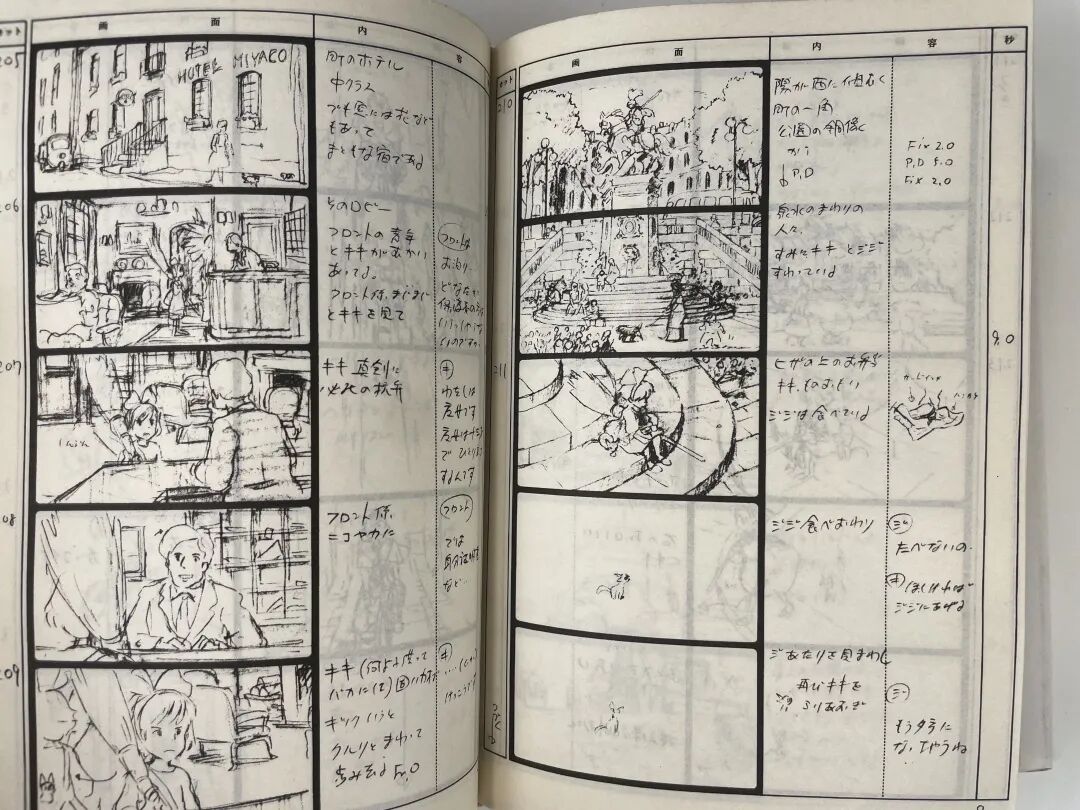 カット
画
面
内
容
205
HOTEL MIYAKO
町のホテル
中クラス
でも窓には花など
もあって
まともな宿である
206
そのロビー
フロントの青年
とキキがむかい
あってる。
フロント係、まじまじ
とキキを見て
フロント係
お泊り…
どなたか
保護者の方は
いらっしゃらな
いのですか
207
キキ 真剣に
必死の抗弁
キ
わたしは
魔女です
魔女は十三才
でひとりだち
するんです
208
フロント係、
ニコヤかに
フロント
では
身分証明書
など…
209
キキ
キッ
クルリとまわって
歩み去る
カット
画
面
内
容
秒
210
陽が西に傾むく
町の一角
公園の銅像
から
P,D
Fix 2.0
P,D 5.0
Fix 2.0
泉水のまわりの
人々、
すみにキキとジジ
すわっている
9.0
211
ヒザの上のお弁当
キキ、ものおもい
ジジは食べている
ジジ食べおわり
ジ
たべないの、
キ
ほしければ
ジジにあげる
ジジあたりを見まわし
再びキキを
ふりあおぎ
ジ
もう夕方に
なっちゃうね
つづく